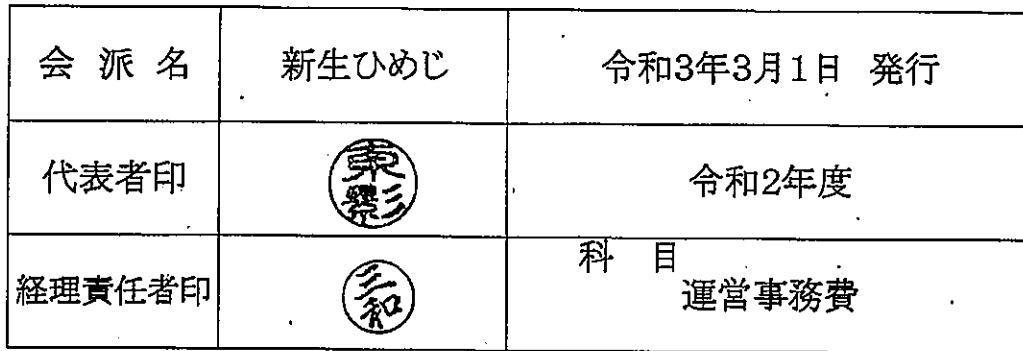 会 派 名 新生ひめじ 令和3年3月1日 発行
代表者印 東影 令和2年度
科 目
経理責任者印 三和 運営事務費